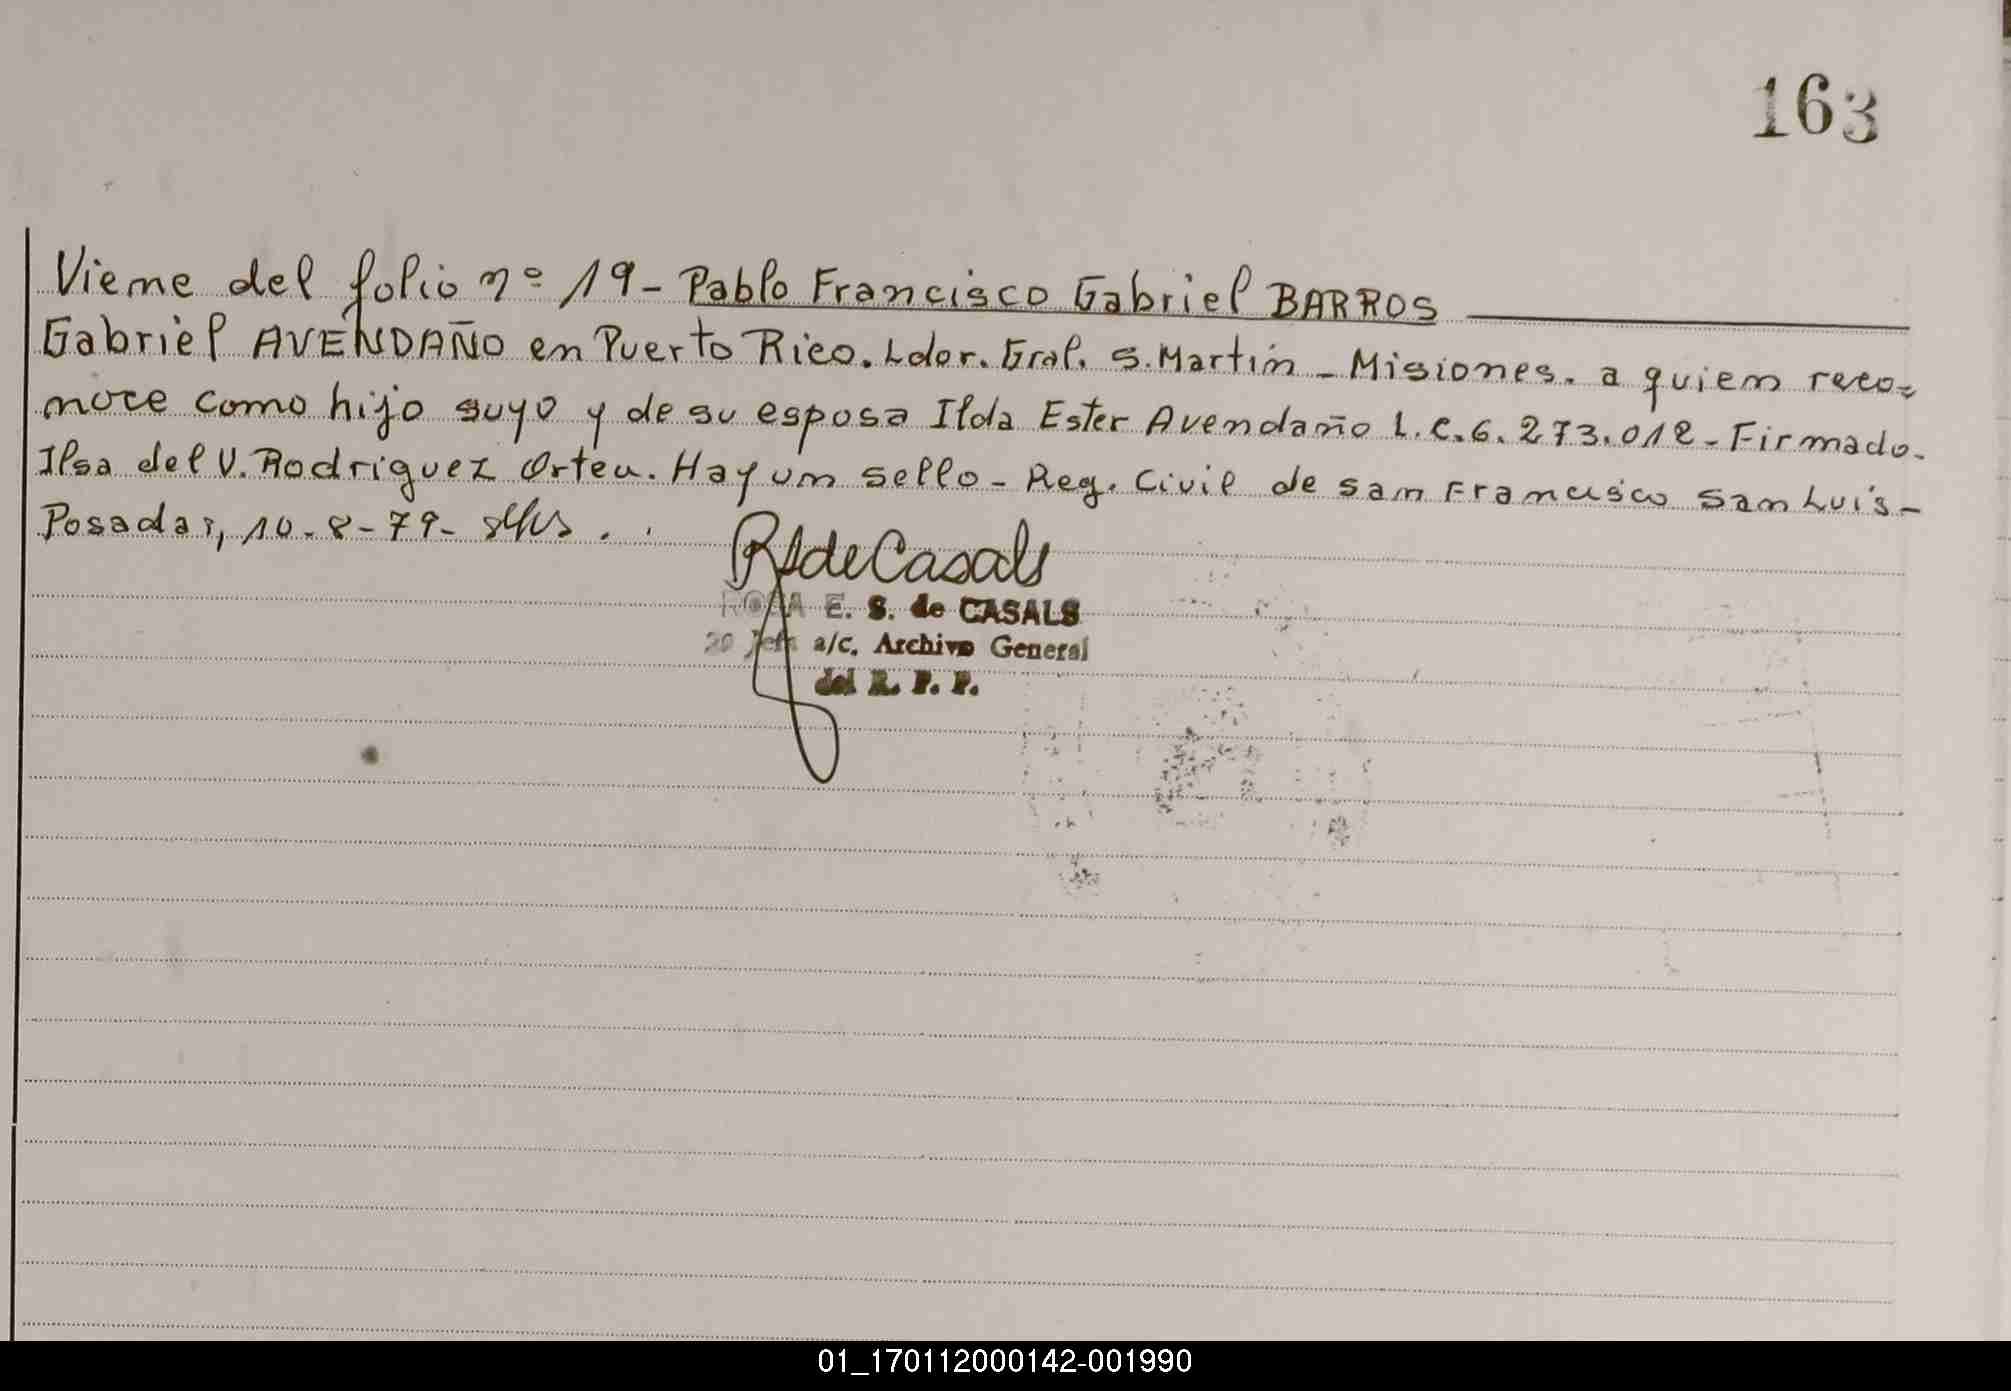 163
Viene del folio nº 19 - Pablo Francisco Gabriel BARROS
Gabriel AVENDAÑO en Puerto Rico. Ldor. Gral. S. Martín - Misiones. a quien reco=
noce como hijo suyo y de su esposa Ilda Ester Avendaño L.C. 6.273.012 - Firmado.
Ilsa del V. Rodriguez Orteu. Hay un sello - Reg. Civil de San Francisco San Luis -
Posadas, 10-8-79-
RSdeCasals
ROSA E. S. de CASALS
2o Jefe a/c. Archivo General
del R. P. P.
01_170112000142-001990